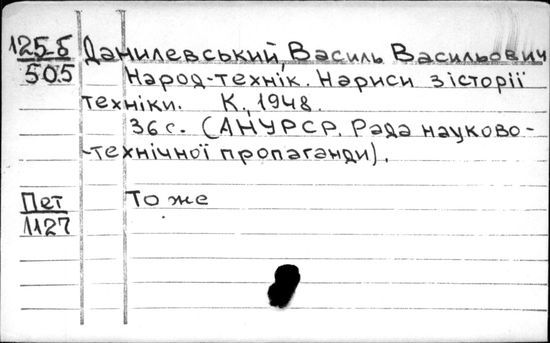 125-б Данилевський, Василь Васильович
505 Народ-технік. Нариси з історії
техніки. К., 1948.
36 с. (АН УРСР. Рада науково-
-технічної пропаганди).
Пет То же
1127